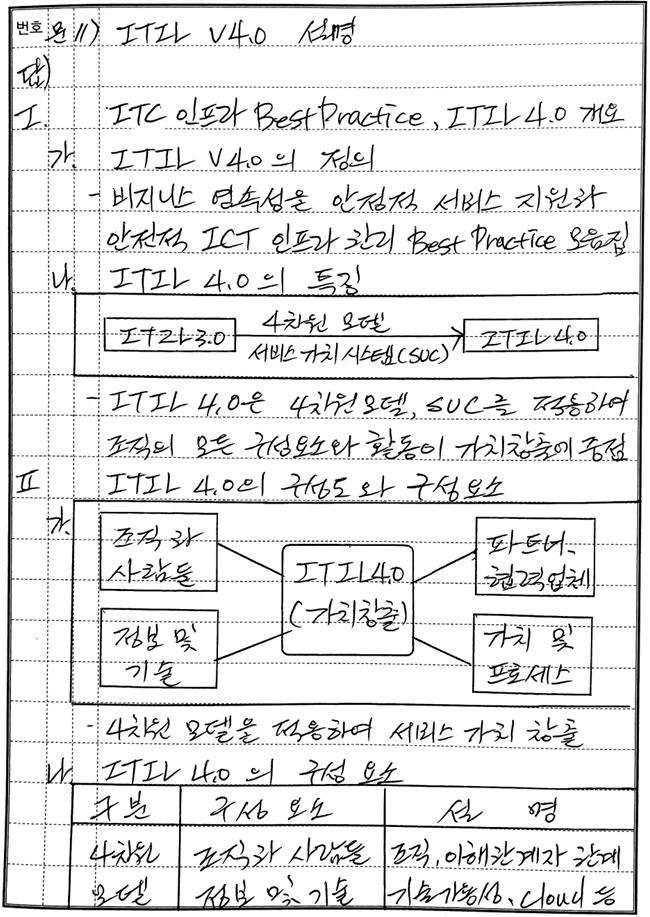 번호 문 11) ITIL V4.0 설명
답)
I. ITC 인프라 Best Practice, ITIL 4.0 개요
가. ITIL V4.0의 정의
- 비지니스 연속성을 안정적 서비스 지원과
안전적 ICT 인프라 관리 Best Practice 모음집
나. ITIL 4.0의 특징
ITIL 3.0 4차원 모델 ITIL 4.0
서비스 가치 시스템(SUC)
- ITIL 4.0은 4차원 모델, SUC를 적용하여
조직의 모든 구성요소와 활동이 가치창출에 중점
II ITIL 4.0의 구성도와 구성요소
가.
조직과 사람들
ITIL 4.0
(가치창출)
파트너,
협력업체
정보 및
기술
가치 및
프로세스
- 4차원 모델을 적용하여 서비스 가치 창출
나. ITIL 4.0의 구성 요소
구분 구성 요소 설 명
4차원 조직과 사람들 조직, 이해관계자 관계
모델 정보 및 기술 기술가능성, Cloud 등